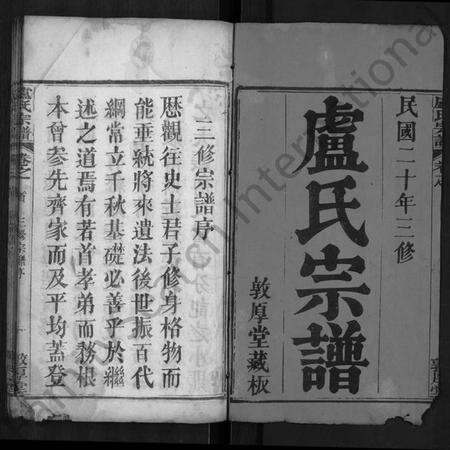 民國二十年三修
盧氏宗譜
敦厚堂藏板
三修宗譜序
歷觀往史士君子修身格物而
能垂統將來遺法後世振百代
綱常立千秋基礎必善乎於繼
述之道焉有若首孝弟而務根
本會參先齊家而及平均蓋登
盧氏宗譜
敦厚堂